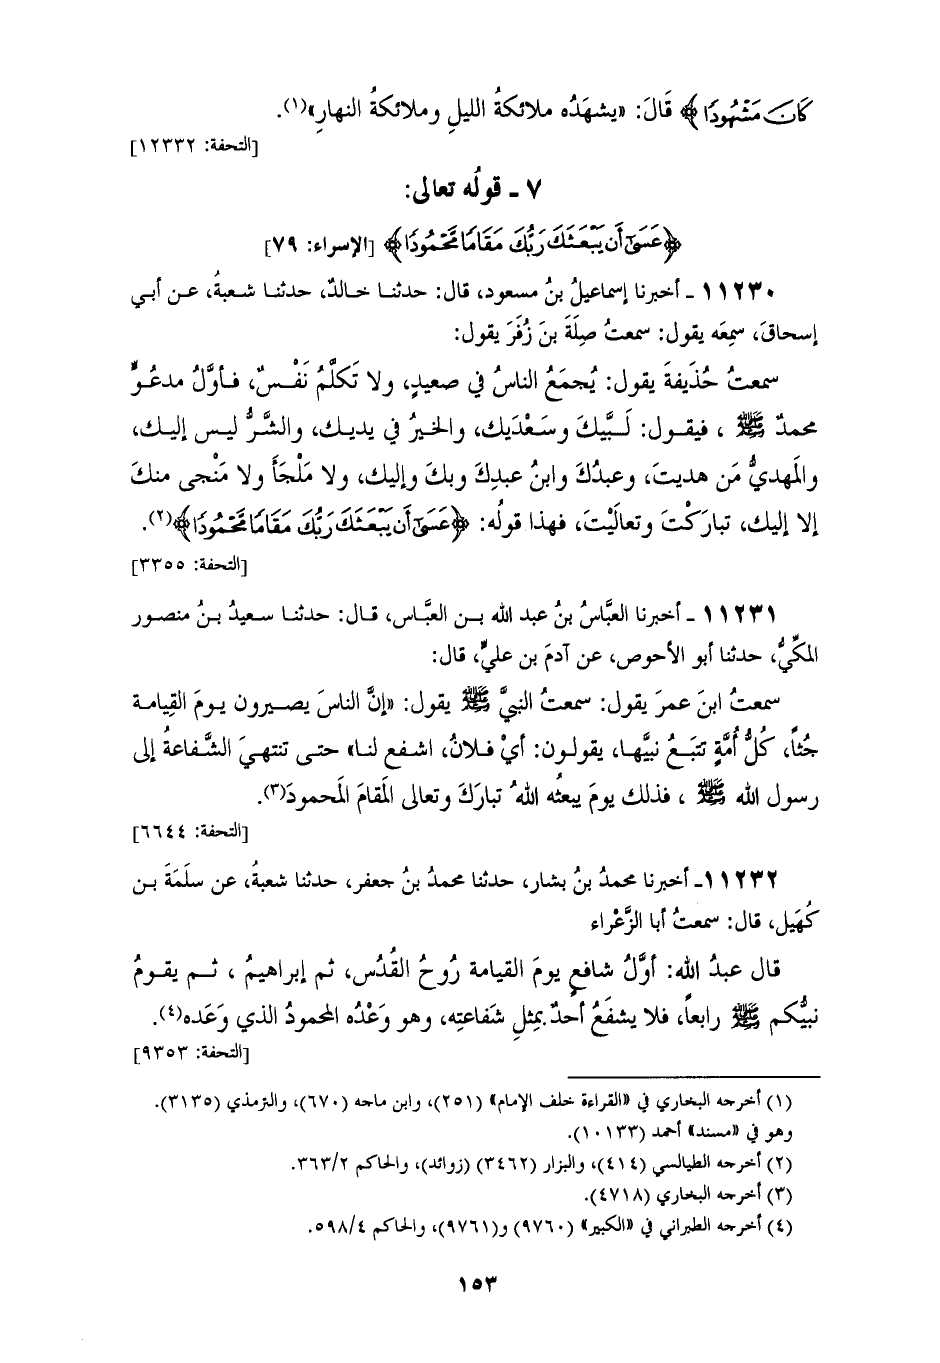 كَانَ مَشْهُودًا﴾ قَالَ: «يشهَدُه ملائكةُ الليلِ وملائكةُ النهارِ»(١).
[التحفة: ١٢٣٣٢]
٧ ـ قولُه تعالى:
﴿عَسَىٰ أَن يَبْعَثَكَ رَبُّكَ مَقَامًا مَّحْمُودًا﴾ [الإسراء: ٧٩]
١١٢٣٠ ـ أخبرنا إسماعيلُ بنُ مسعود، قال: حدثنا خالدٌ، حدثنا شعبةُ، عن أبي
إسحاقَ، سمِعَه يقول: سمعتُ صِلَةَ بنَ زُفَرَ يقول:
سمعتُ حُذَيفةَ يقول: يُجمَعُ الناسُ في صعيدٍ، ولا تَكلَّمُ نَفْسٌ، فأوَّلُ مدعُوٍّ
محمدٌ ﷺ ، فيقول: لَبَّيكَ وسَعْدَيك، والخيرُ في يديك، والشَّرُّ ليس إليك،
والمَهديُّ مَن هديتَ، وعبدُكَ وابنُ عبدِكَ وبكَ وإليك، ولا مَلْجَأَ ولا مَنْجى منكَ
إلا إليك، تباركْتَ وتعالَيْتَ، فهذا قولُه: ﴿عَسَىٰ أَن يَبْعَثَكَ رَبُّكَ مَقَامًا مَّحْمُودًا﴾(٢).
[التحفة: ٣٣٥٥]
١١٢٣١ ـ أخبرنا العبَّاسُ بنُ عبد الله بن العبَّاس، قال: حدثنا سعيدُ بنُ منصور
المكِّيُّ، حدثنا أبو الأحوص، عن آدمَ بن عليٍّ، قال:
سمعتُ ابنَ عمرَ يقول: سمعتُ النبيَّ ﷺ يقول: «إنَّ الناسَ يصيرون يومَ القِيامة
جُثاً، كُلُّ أُمَّةٍ تتبَعُ نبيَّها، يقولون: أيْ فلانُ، اشفع لنا» حتى تنتهيَ الشَّفاعةُ إلى
رسول الله ﷺ ، فذلك يومَ يبعثُه اللهُ تبارَكَ وتعالى المَقامَ المَحمودَ(٣).
[التحفة: ٦٦٤٤]
١١٢٣٢ـ أخبرنا محمدُ بنُ بشار، حدثنا محمدُ بنُ جعفر، حدثنا شعبةُ، عن سلَمَةَ بن
كُهَيل، قال: سمعتُ أبا الزَّعْراء
قال عبدُ الله: أوَّلُ شافعٍ يومَ القيامة رُوحُ القُدُس، ثم إبراهيمُ ، ثم يقومُ
نبيُّكم ﷺ رابعاً، فلا يشفَعُ أحدٌ بمِثلِ شَفاعتِه، وهو وَعْدُه المحمودُ الذي وَعَده(٤).
[التحفة: ٩٣٥٣]
(١) أخرجه البخاري في «القراءة خلف الإمام» (٢٥١)، وابن ماجه (٦٧٠)، والترمذي (٣١٣٥).
وهو في «مسند» أحمد (١٠١٣٣).
(٢) أخرجه الطيالسي (٤١٤)، والبزار (٣٤٦٢) (زوائد)، والحاكم ٣٦٣/٢.
(٣) أخرجه البخاري (٤٧١٨).
(٤) أخرجه الطبراني في «الكبير» (٩٧٦٠) و(٩٧٦١)، والحاكم ٥٩٨/٤.
١٥٣